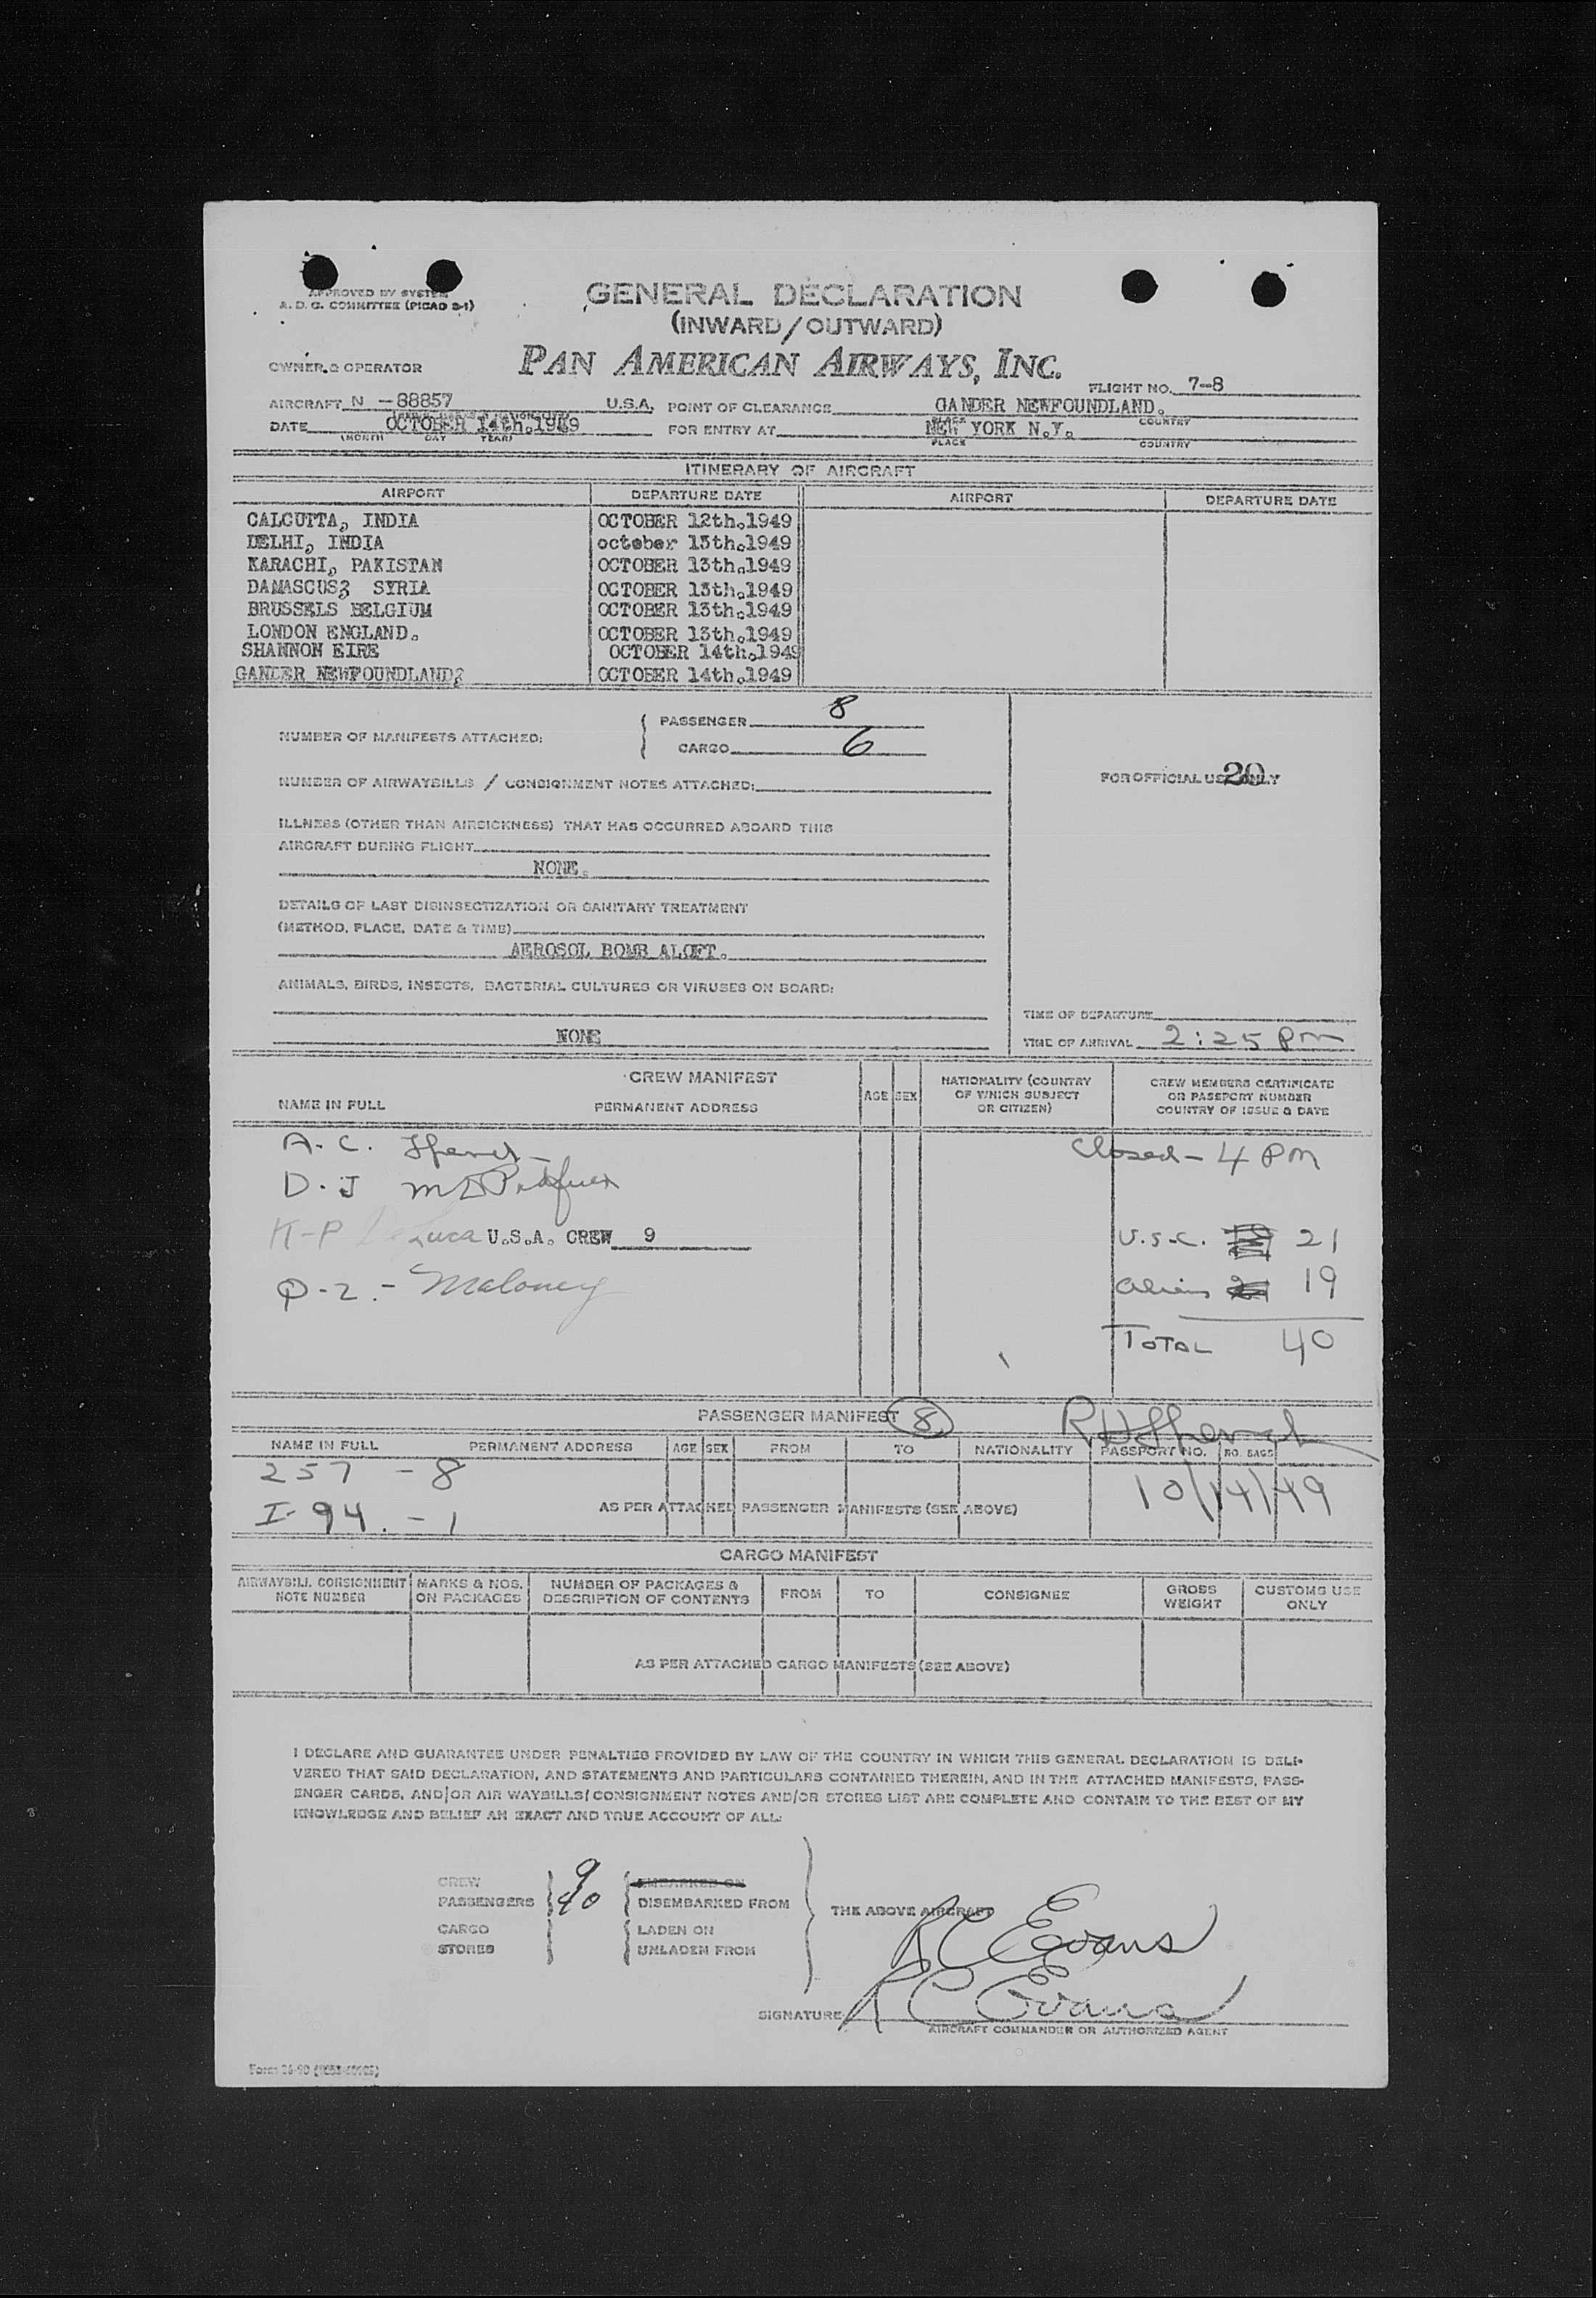 APPROVED BY SYSTEM
A. D. G. COMMITTEE (PICAO 2-1)
GENERAL DECLARATION
(INWARD/OUTWARD)
OWNER & OPERATOR PAN AMERICAN AIRWAYS, INC.
FLIGHT NO. 7-8
AIRCRAFT N -88857 U.S.A. POINT OF CLEARANCE GANDER NEWFOUNDLAND.
PLACE COUNTRY
DATE OCTOBER 14th.1949 FOR ENTRY AT NEW YORK N.Y.
(MONTH DAY YEAR) PLACE COUNTRY
ITINERARY OF AIRCRAFT
AIRPORT DEPARTURE DATE AIRPORT DEPARTURE DATE
CALCUTTA, INDIA OCTOBER 12th.1949
DELHI, INDIA october 13th.1949
KARACHI, PAKISTAN OCTOBER 13th.1949
DAMASCUS3 SYRIA OCTOBER 13th.1949
BRUSSELS BELGIUM OCTOBER 13th.1949
LONDON ENGLAND. OCTOBER 13th.1949
SHANNON EIRE OCTOBER 14th.1949
GANDER NEWFOUNDLAND3 OCTOBER 14th.1949
NUMBER OF MANIFESTS ATTACHED: PASSENGER 8
CARGO 6
FOR OFFICIAL USE ONLY 20
NUMBER OF AIRWAYBILLS / CONSIGNMENT NOTES ATTACHED:
ILLNESS (OTHER THAN AIRSICKNESS) THAT HAS OCCURRED ABOARD THIS
AIRCRAFT DURING FLIGHT
NONE.
DETAILS OF LAST DISINSECTIZATION OR SANITARY TREATMENT
(METHOD, PLACE, DATE & TIME)
AEROSOL BOMB ALOFT.
ANIMALS, BIRDS, INSECTS, BACTERIAL CULTURES OR VIRUSES ON BOARD:
NONE
TIME OF DEPARTURE
TIME OF ARRIVAL 2:25 pm
CREW MANIFEST
NAME IN FULL PERMANENT ADDRESS AGE SEX NATIONALITY (COUNTRY OF WHICH SUBJECT OR CITIZEN) CREW MEMBERS CERTIFICATE OR PASSPORT NUMBER COUNTRY OF ISSUE & DATE
A. C.
Closed - 4 PM
D. J
K-P DeLuca U.S.A. CREW 9
U.S.C. 21
P-2. - Maloney
Aliens 19
TOTAL 40
PASSENGER MANIFEST 8
NAME IN FULL PERMANENT ADDRESS AGE SEX FROM TO NATIONALITY PASSPORT NO. NO. BAGS
257 - 8
10/14/49
I-94. - 1
AS PER ATTACHED PASSENGER MANIFESTS (SEE ABOVE)
CARGO MANIFEST
AIRWAYBILL CONSIGNMENT NOTE NUMBER MARKS & NOS. ON PACKAGES NUMBER OF PACKAGES & DESCRIPTION OF CONTENTS FROM TO CONSIGNEE GROSS WEIGHT CUSTOMS USE ONLY
AS PER ATTACHED CARGO MANIFESTS (SEE ABOVE)
I DECLARE AND GUARANTEE UNDER PENALTIES PROVIDED BY LAW OF THE COUNTRY IN WHICH THIS GENERAL DECLARATION IS DELI-
VERED THAT SAID DECLARATION, AND STATEMENTS AND PARTICULARS CONTAINED THEREIN, AND IN THE ATTACHED MANIFESTS, PASS-
ENGER CARDS, AND/OR AIR WAYBILLS/CONSIGNMENT NOTES AND/OR STORES LIST ARE COMPLETE AND CONTAIN TO THE BEST OF MY
KNOWLEDGE AND BELIEF AN EXACT AND TRUE ACCOUNT OF ALL:
CREW 9 EMBARKED ON
PASSENGERS 40 DISEMBARKED FROM
THE ABOVE AIRCRAFT
CARGO LADEN ON
STORES UNLADEN FROM
R C Evans
SIGNATURE R C Evans
AIRCRAFT COMMANDER OR AUTHORIZED AGENT